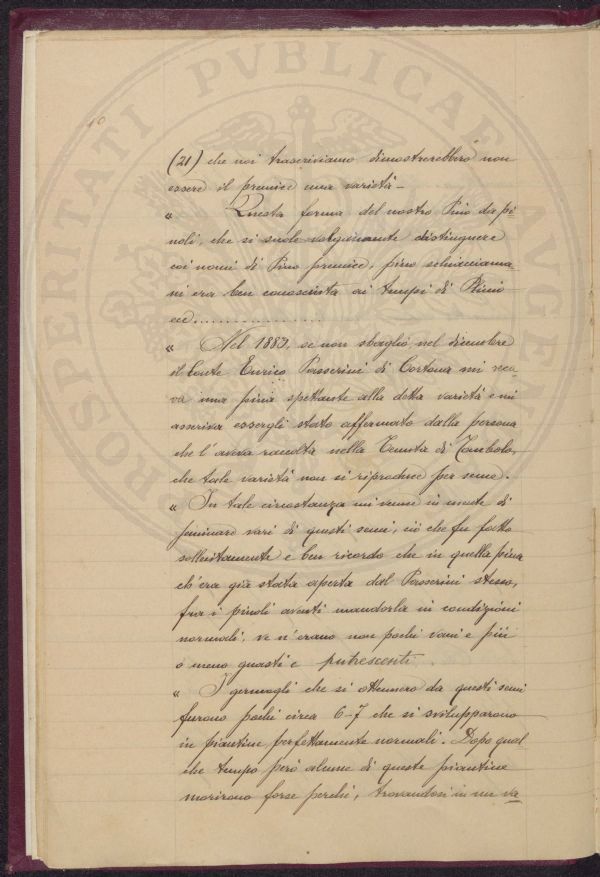 10
PROSPERITATI PVBLICAE AVGENDAE
(21) che noi trascriviamo dimostrerebbero non
essere il premice una varietà –
« Questa forma del nostro Pino da pi=
noli, che si suole volgarmente distinguere
coi nomi di Pino premice, pino schiacciama=
ni era ben conosciuta ai tempi di Plinio
ecc..................
« Nel 1883, se non sbaglio, nel dicembre
il Conte Enrico Passerini di Cortona mi reca=
va una pina spettante alla detta varietà e mi
asseriva essergli stato affermato dalla persona
che l'aveva raccolta nella Tenuta di Tombolo,
che tale varietà non si riproduce per seme.
« In tale circostanza mi venne in mente di
seminare vari di questi semi, ciò che fu fatto
sollecitamente e ben ricordo che in quella pina
ch'era già stata aperta dal Passerini stesso,
fra i pinoli aventi mandorla in condizioni
normali, ve n'erano non pochi vani e più
o meno guasti e putrescenti.
« I germogli che si ottennero da questi semi
furono pochi circa 6-7 che si svilupparono
in piantine perfettamente normali. Dopo qual
che tempo però alcune di queste piantine
morirono forse perchè, trovandosi in un va